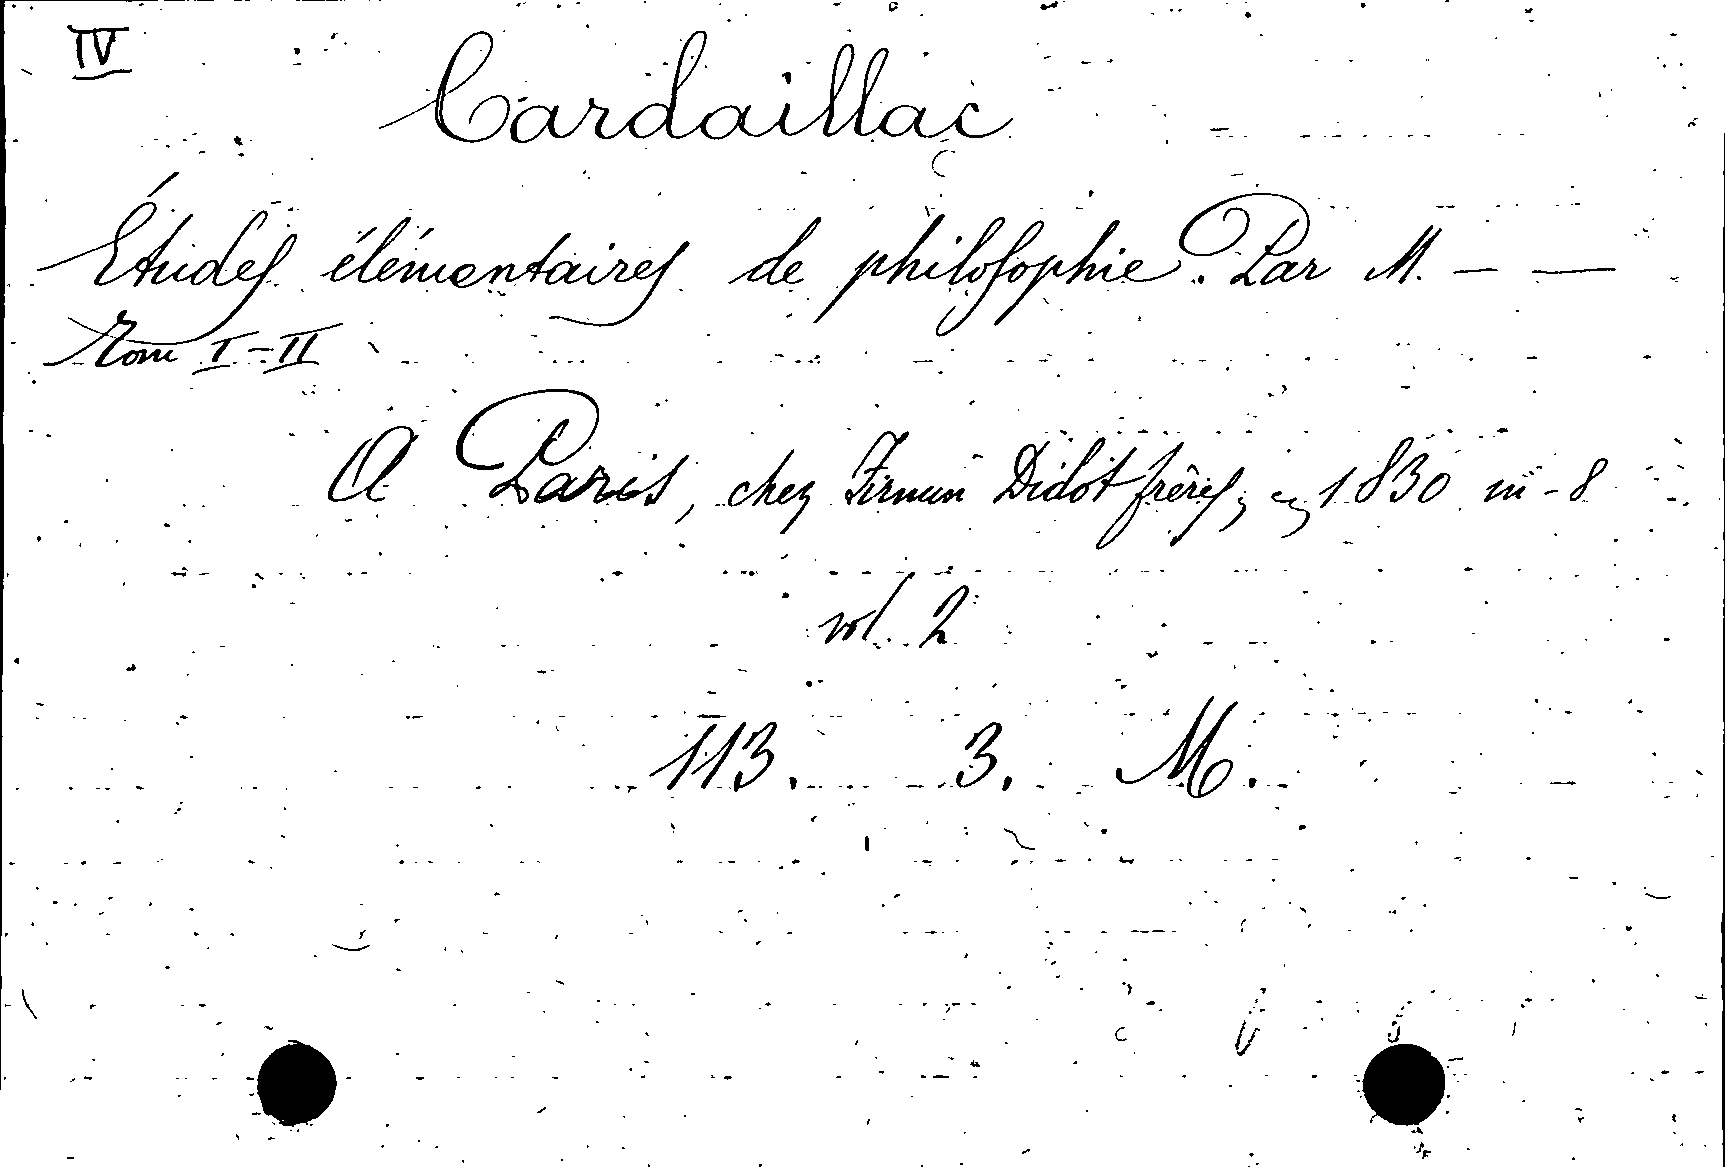 IV
Cardaillac
Études élémentaires de philosophie. Par M. — —
Tom I-II
A Paris, chez Firmin Didot frères, 1830 in-8
vol. 2
113. 3. M.